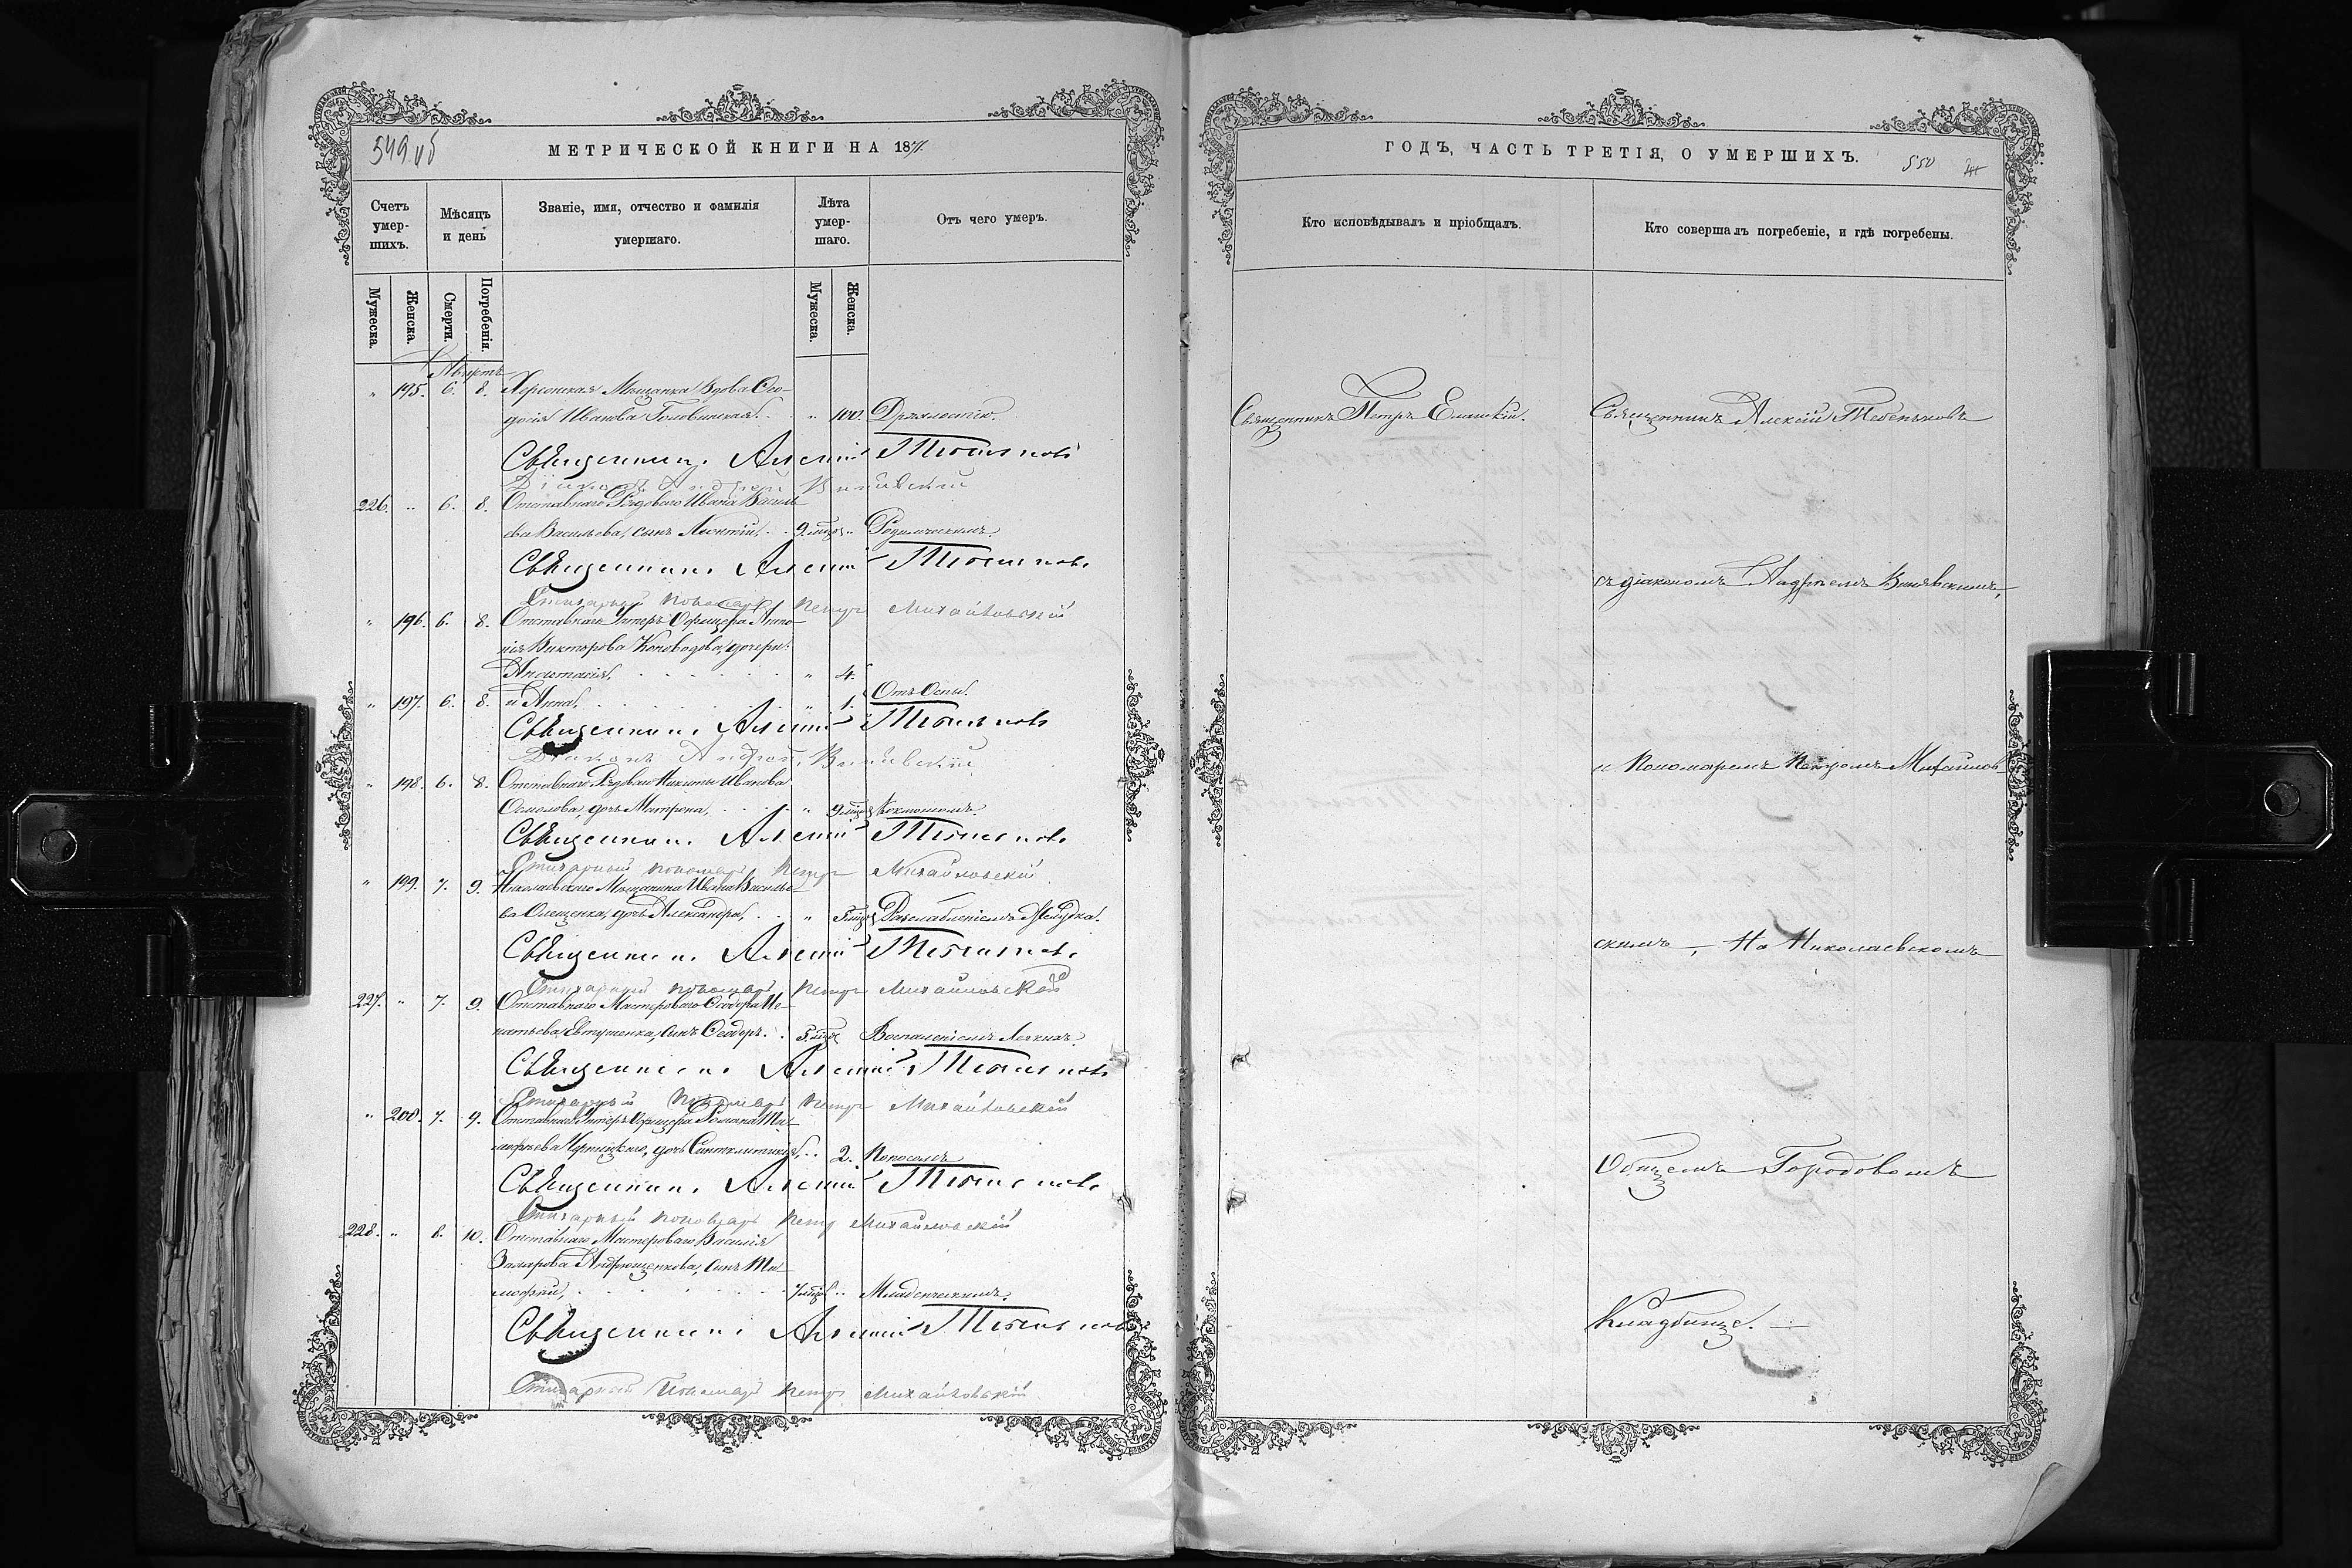 549 об
МЕТРИЧЕСКОЙ КНИГИ НА 1871.
Счетъ умер-шихъ.
Мѣсяцъ и день
Званіе, имя, отчество и фамилія умершаго.
Лѣта умер-шаго.
Отъ чего умеръ.
Мужеска.
Женска.
Смерти.
Погребенія.
Мужеска.
Женска.
Августъ
" 195. 6. 8. Херсонская Мѣщанка Вдова Ѳео-
досія Иванова Головинская. " 100. Дряхлостію.
Священникъ Алексій Тебеньковъ
Діаконъ Андрей
226. " 6. 8. Отставнаго Рядоваго Ивана Василь-
ева Васильева, сынъ Леонтій, 9. мцъ " Родимческимъ.
Священникъ Алексій Тебеньковъ
Стихарный пономарь Петръ Михайловскій
" 196. 6. 8. Отставнаго Унтеръ Офицера Анто-
нія Викторова Коновадова, дочери:
Анастасія, " 4.
" 197. 6. 8. и Анна, " 1. Отъ Оспы.
Священникъ Алексій Тебеньковъ
Діаконъ Андрей
" 198. 6. 8. Отставнаго Рядоваго Никиты Иванова
дочь Матрона, " 9 мцъ Коклюшемъ.
Священникъ Алексій Тебеньковъ
Стихарный пономарь Петръ Михайловскій
" 199. 7. 9. Николаевскаго Мѣщанина Ивана Василье-
ва Олещенка, дочь Александра, " 5 мцъ Разслабленіемъ Желудка.
Священникъ Алексій Тебеньковъ
Стихарный пономарь Петръ Михайловскій
227. " 7. 9. Отставнаго Мастероваго Ѳеодора Иг-
натьева Евтушенка, сынъ Ѳеодоръ. 5 мцъ Воспаленіемъ Легкихъ.
Священникъ Алексій Тебеньковъ
Стихарный пономарь Петръ Михайловскій
" 200. 7. 9. Отставнаго Унтеръ Офицера Романа Ти-
мофѣева дочь Синклитикія, 2. Поносомъ
Священникъ Алексій Тебеньковъ
Стихарный пономарь Петръ Михайловскій
228. " 8. 10. Отставнаго Мастероваго Василія
Захарова Андрющенкова, сынъ Ти-
мофей, 7 мцъ " Младенческимъ.
Священникъ Алексій Тебеньковъ
Стихарный Пономарь Петръ Михайловскій
ГОДЪ, ЧАСТЬ ТРЕТІЯ, О УМЕРШИХЪ.
550
Кто исповѣдывалъ и пріобщалъ.
Кто совершалъ погребеніе, и гдѣ погребены.
Священникъ Петръ Еланскій.
Священникъ Алексій Тебеньковъ
съ діакономъ Андреемъ
и Пономаремъ Петромъ Михайлов-
скимъ, На Николаевскомъ
Общемъ Городовомъ
Кладбище.